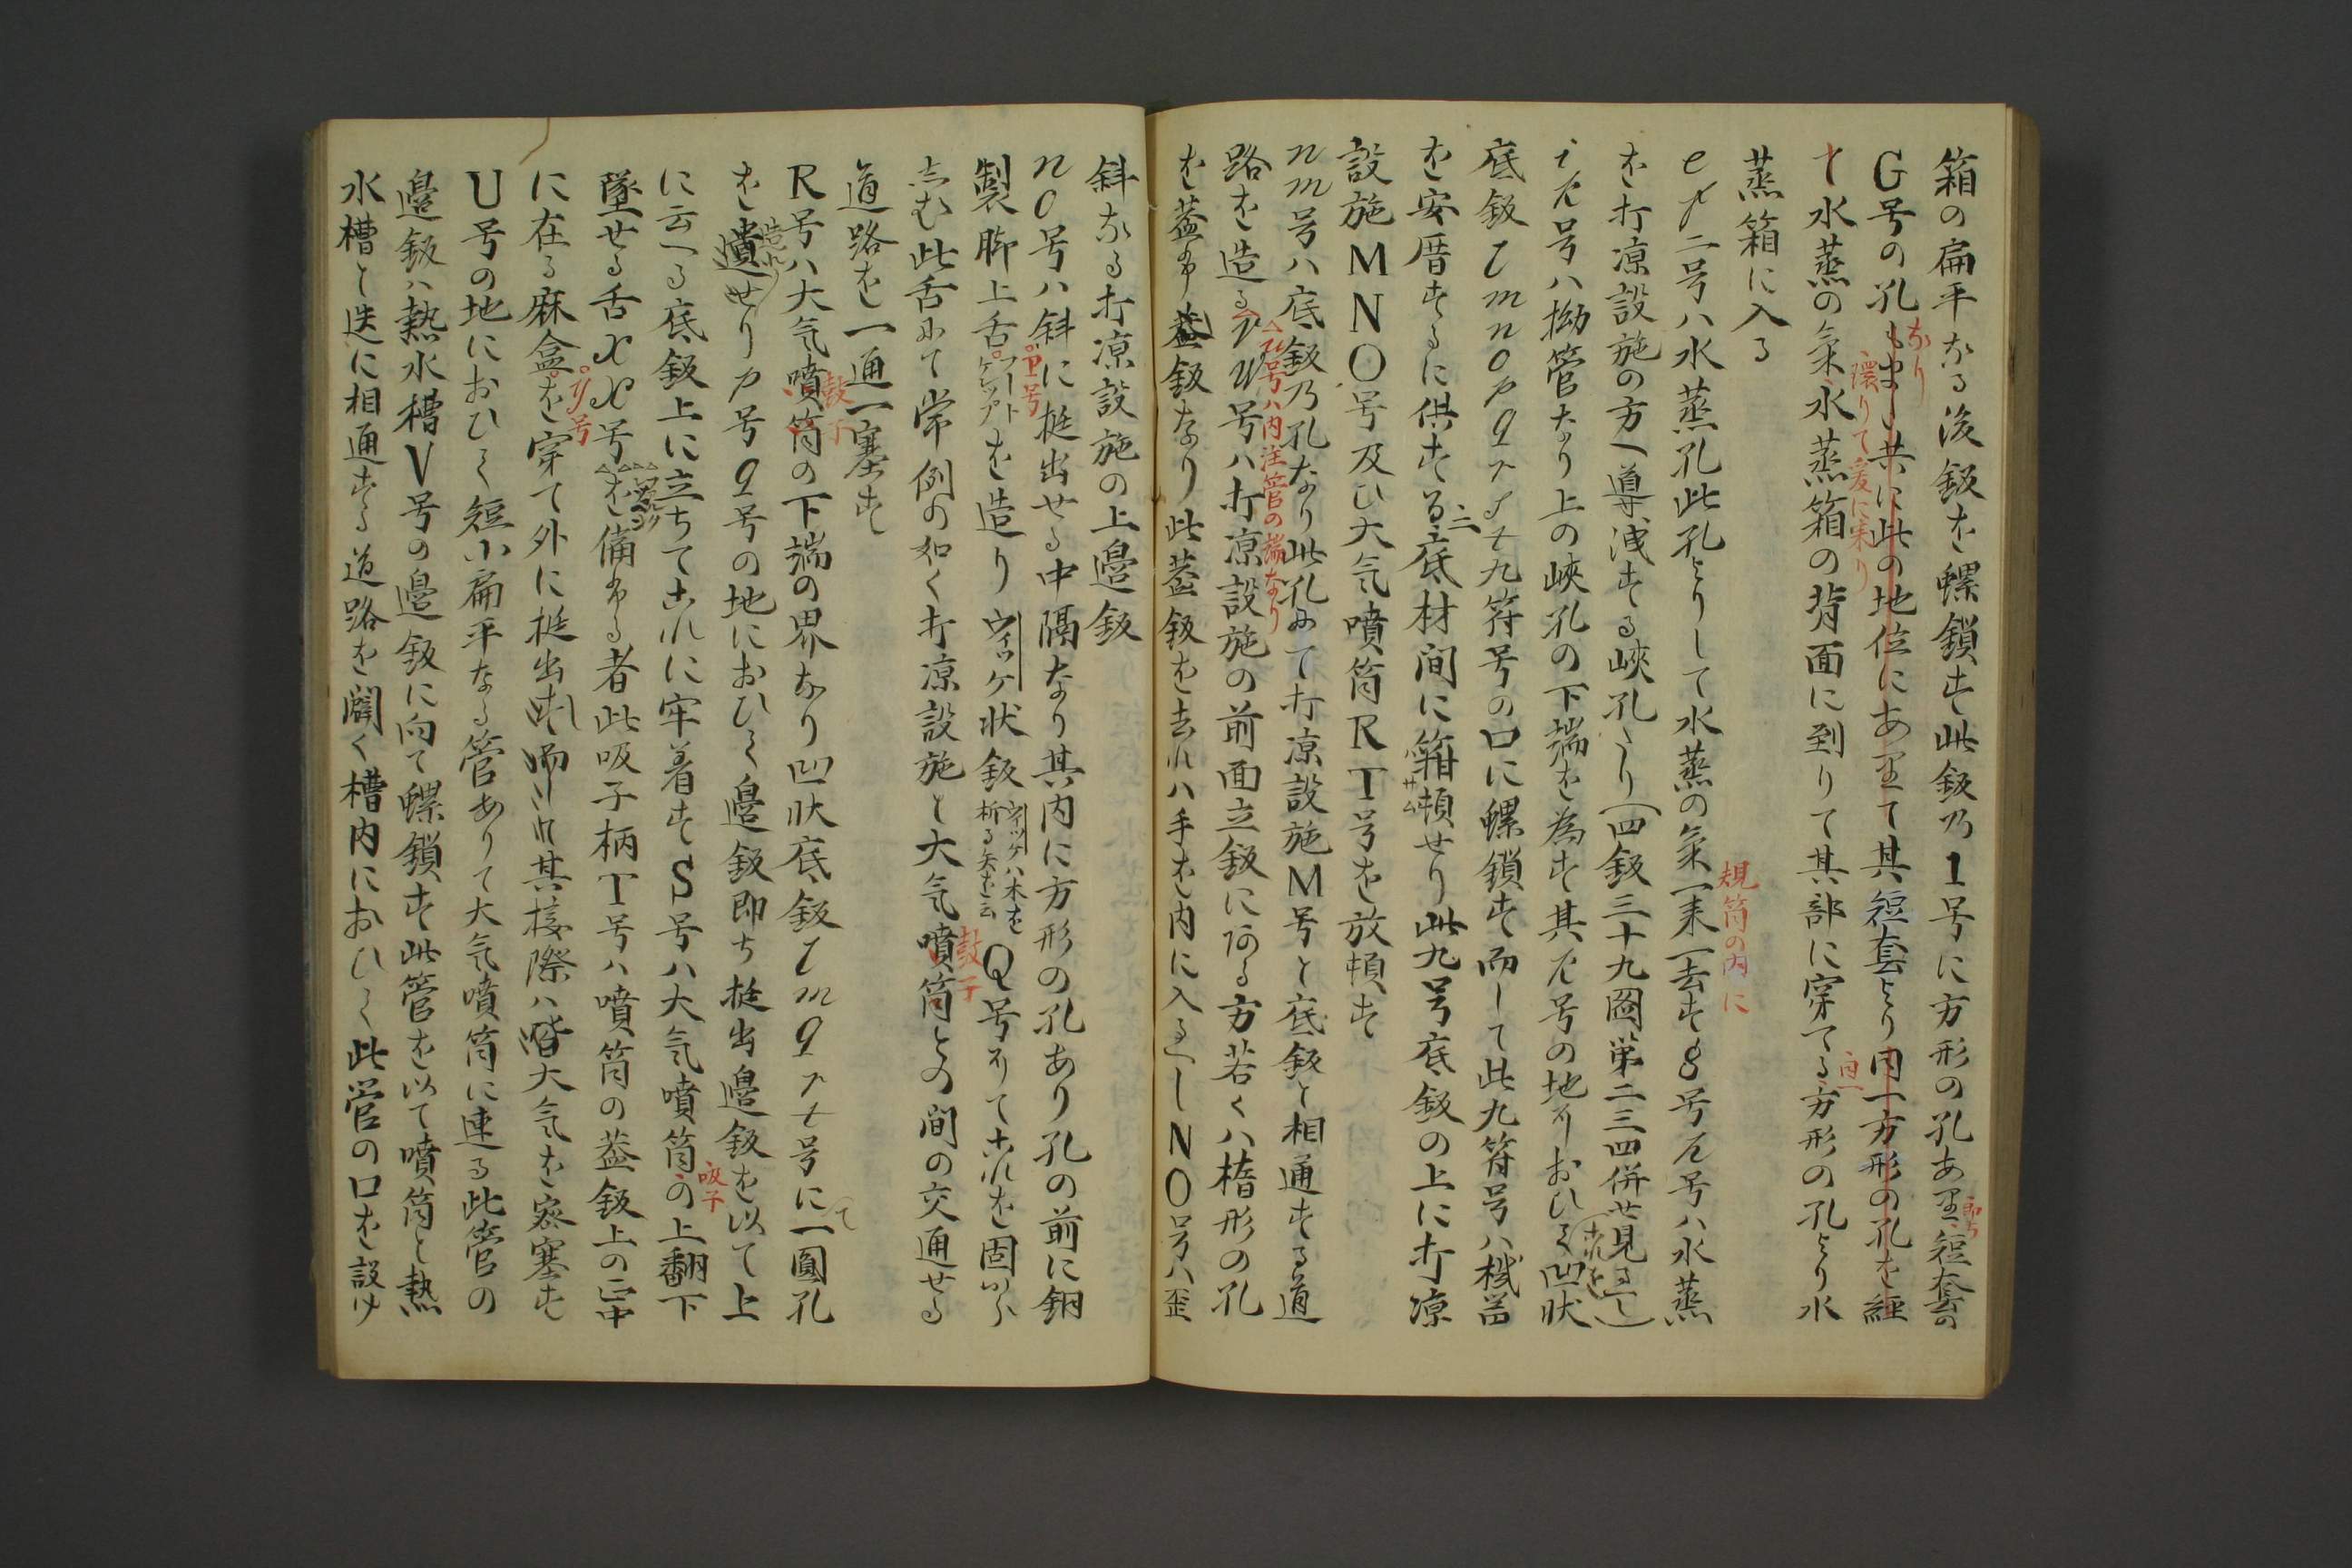 箱の扁平なる後鈑を螺鎖す此鈑乃I号に方形の孔あり即ち短套の
G号の孔なり共に此の地位にありて其短套より同一方形の孔を経
環りて爰に来り
て水蒸の気水蒸箱の背面に到りて其部に穿てる方形の孔より水
蒸箱に入る
規筒の内に
e f二号ハ水蒸孔此孔よりして水蒸の気一来一去す g号 k号ハ水蒸
を打凉設施の方へ導洩する峽孔なり(四鈑三十九圖第二三四併せ見るへし)
i k号ハ拗管なり上の峽孔の下端を為す其k号の地におひて凹状
底鈑 l m n o p q r s t 九符号の口に螺鎖す而して此九符号ハ機器
を安厝するに供する二底材間に箝頓せり此九号底鈑の上に打凉
設施MNO号及ひ大気噴筒RT号を放頓す
n m号ハ底鈑乃孔なり此孔にて打凉設施M号と底鈑と相通する道
号ハ内注管の端なり
路を造る 号ハ打凉設施の前面立鈑に 方若くハ楕形の孔
を蓋 蓋鈑なり此蓋鈑を去れハ手を内に入るへしNO号ハ歪
斜なる打凉設施の上邉鈑
n o号ハ斜に挺出せる中隔なり其内に方形の孔あり孔の前に銅
P号
製脚上舌フートケレップを造りウイッケ状鈑ウイッケハ木を析る矢を云Q号 てこれを固 
しむ此舌にて常例の如く打凉設施と大気噴筒との間の交通せる
鼓子
道路を一通一塞す
R号ハ大気噴筒の下端の界なり凹状底鈑 l m q r t号にて一圓孔
鼓子
を造れり p号 q号の地におひて邉鈑即ち挺出邉鈑を以て上
に云へる底鈑上に立ちてこれに牢着すS号ハ大気噴筒の上翻下
吸子
墜せる舌 x x号を備 る者此吸子柄T号ハ噴筒の蓋鈑上の正中
に在る麻盒を穿て外に挺出 其接際ハ皆大気を密塞す
y号
U号の地におひて短小扁平なる管ありて大気噴筒に連る此管の
邉鈑ハ熱水槽V号の邉鈑に向て螺鎖す此管を以て噴筒と熱
水槽と迭に相通する道路を闢く槽内におひて此管の口を設け